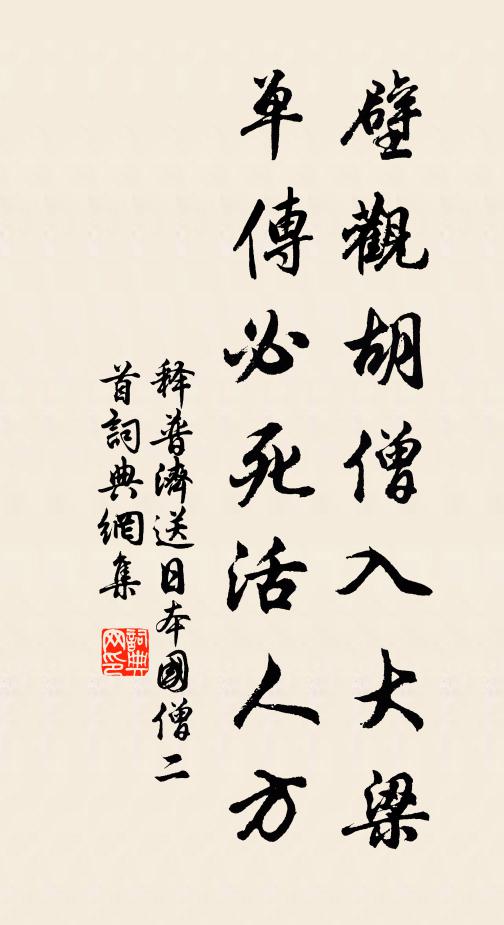 壁觀胡僧入大梁
单傳必死活人方
释普濟送日本國僧二
首詞典網集
詞典网印